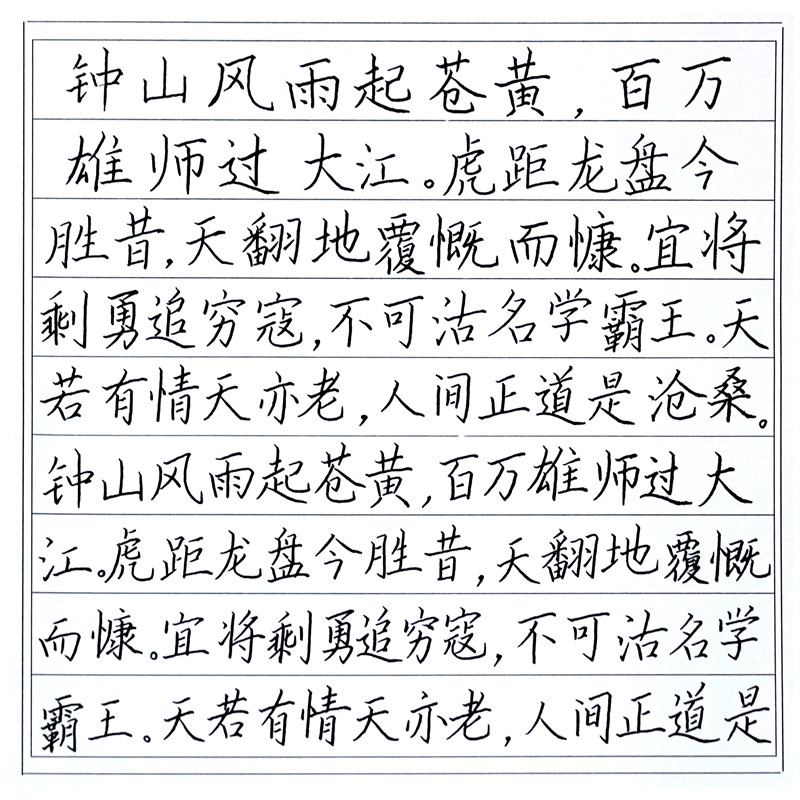 钟山风雨起苍黄,百万
雄师过大江。虎距龙盘今
胜昔,天翻地覆慨而慷。宜将
剩勇追穷寇,不可沽名学霸王。天
若有情天亦老,人间正道是沧桑。
钟山风雨起苍黄,百万雄师过大
江。虎距龙盘今胜昔,天翻地覆慨
而慷。宜将剩勇追穷寇,不可沽名学
霸王。天若有情天亦老,人间正道是